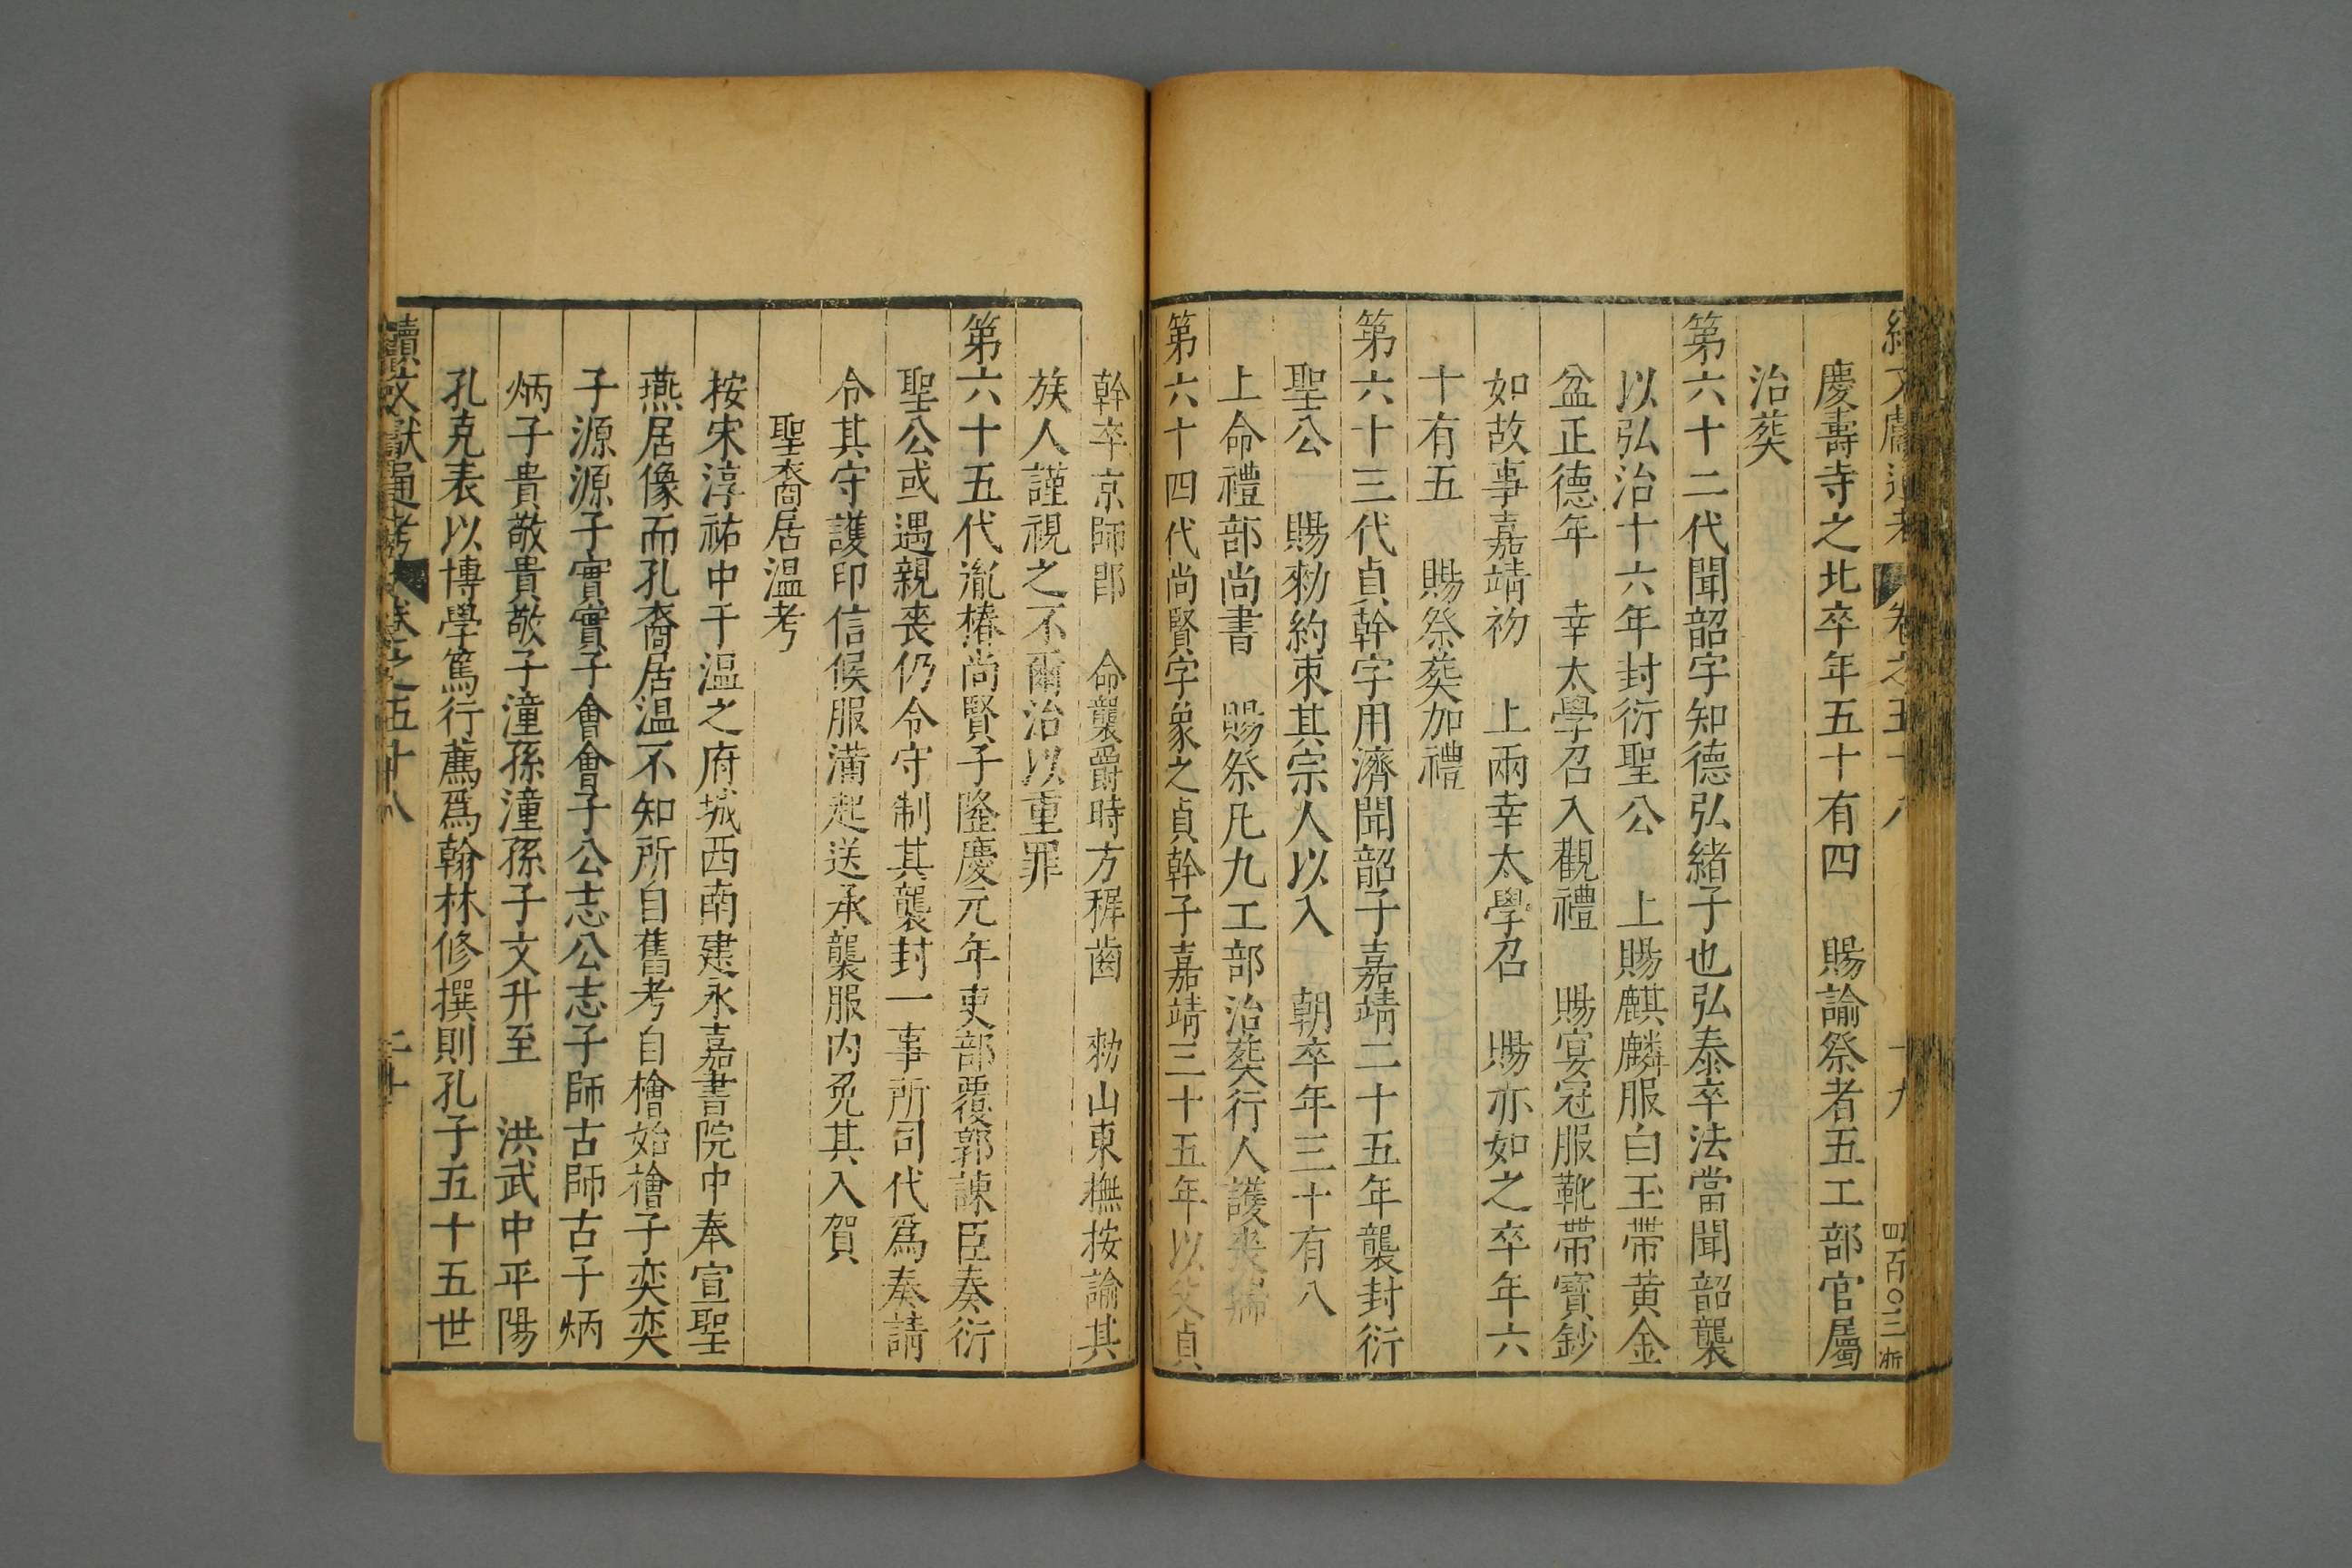 續文獻通考 卷之五十八 十九 四百〇三 浙
慶壽寺之北卒年五十有四 賜諭祭者五工部官屬
治葬
第六十二代聞韶字知德弘緒子也弘泰卒法當聞韶襲
以弘治十六年封衍聖公 上賜麒麟服白玉帶黃金
盆正德年 幸太學召入觀禮 賜宴冠服靴帶寶鈔
如故事嘉靖初 上兩幸太學召 賜亦如之卒年六
十有五 賜祭葬加禮
第六十三代貞幹字用濟聞韶子嘉靖二十五年襲封衍
聖公 賜勑約束其宗人以入 朝卒年三十有八
上命禮部尚書 賜祭凡九工部治葬行人護喪歸
第六十四代尚賢字象之貞幹子嘉靖三十五年以父貞
幹卒京師即 命襲爵時方穉齒 勑山東撫按諭其
族人謹視之不爾治以重罪
第六十五代胤椿尚賢子隆慶元年吏部覆郭諫臣奏衍
聖公或遇親喪仍令守制其襲封一事所司代爲奏請
令其守護印信候服滿起送承襲服內免其入賀
聖裔居溫考
按宋淳祐中千溫之府城西南建永嘉書院中奉宣聖
燕居像而孔裔居溫不知所自舊考自檜始檜子奕奕
子源源子實實子會會子公志公志子師古師古子炳
炳子貴敬貴敬子潼孫潼孫子文升至 洪武中平陽
孔克表以博學篤行薦爲翰林修撰則孔子五十五世
續文獻通考 卷之五十八 二十